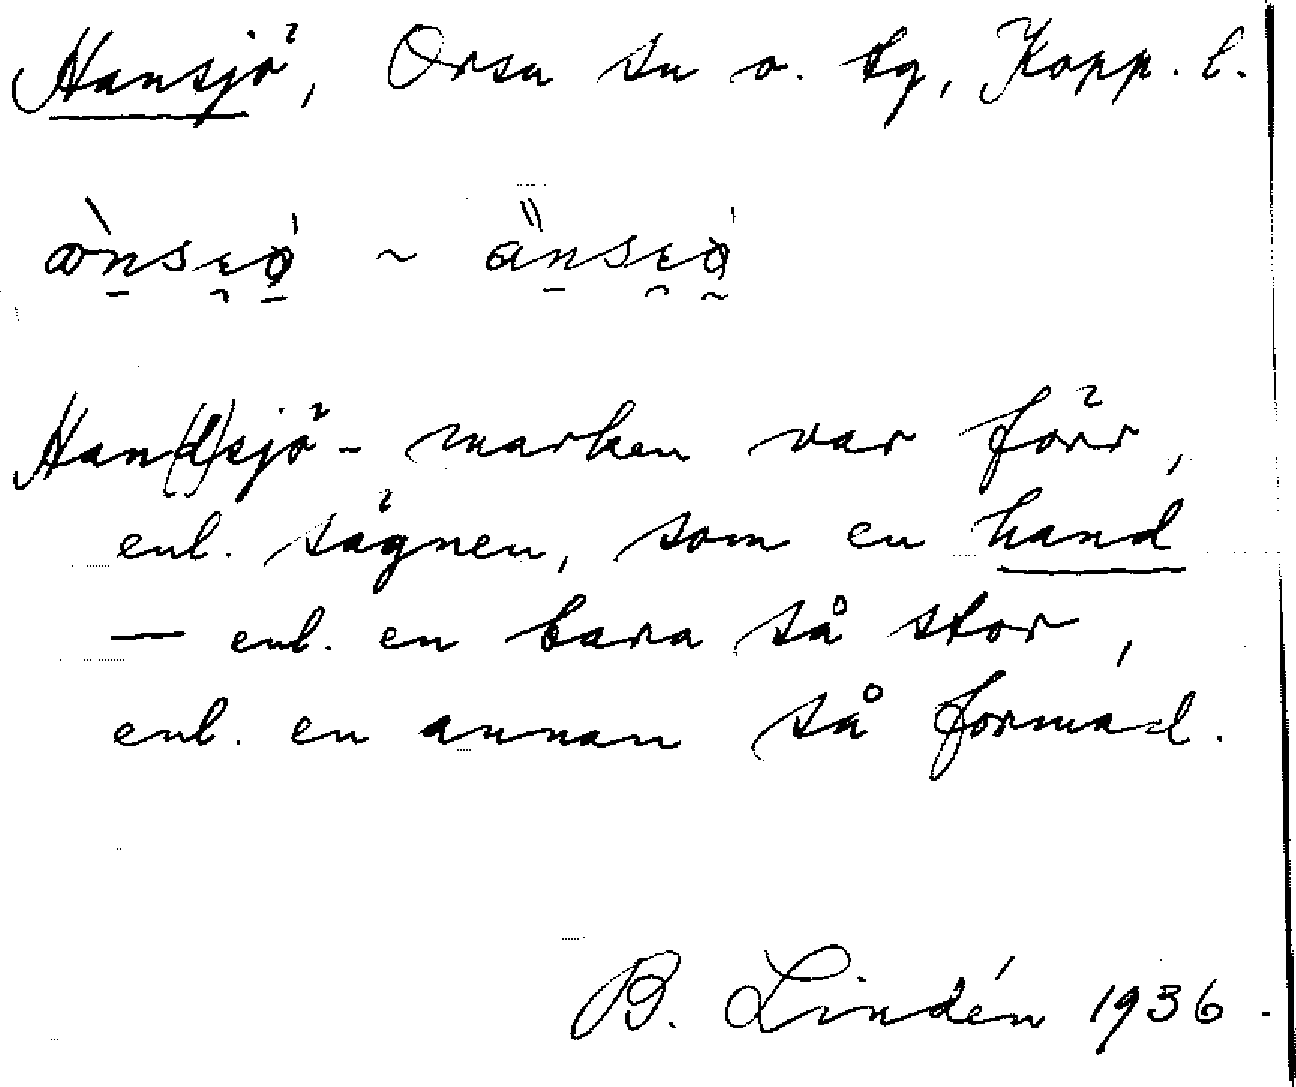 Hansjö, Orsa sn o. tg, Kopp. l.
Han(d)sjö-marken var förr,
enl. sägnen, som en hand
— enl. en bara så stor,
enl. en annan så formad.
B. Lindén 1936.